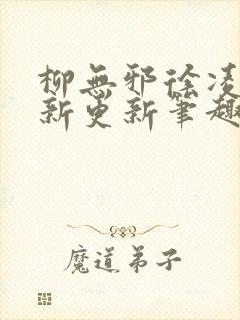 柳無邪徐凌
新更新筆趣
魔道弟子